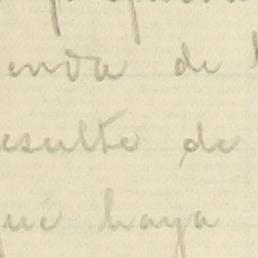 enda de
esulte de
qué haya